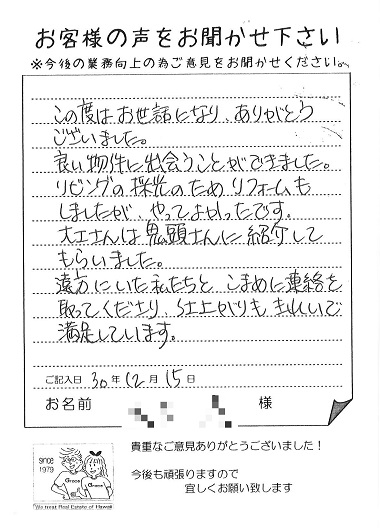 お客様の声をお聞かせ下さい
※今後の業務向上の為ご意見をお聞かせください。
この度はお世話になり、ありがとう
ございました。
良い物件に出会うことができました。
リビングの採光のためリフォームも
しましたが、やってよかったです。
大工さんは鬼頭さんに紹介して
もらいました。
遠方にいた私たちと こまめに連絡を
取ってくださり、仕上がりもきれいで
満足しています。
ご記入日 30年12月15日
お名前 様
since
1979
Grace
Grace
We treat Real Estate of Hawaii
貴重なご意見ありがとうございました！
今後も頑張りますので
宜しくお願い致します